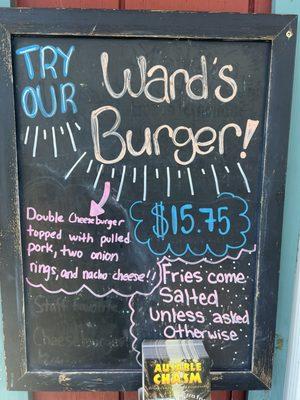 TRY
OUR
Ward's
Burger!
Double Cheeseburger
topped with pulled
pork, two onion
rings, and nacho cheese!!
$15.75
Fries come
Salted
Unless asked
Otherwise
Staff favorite
AUSABLE
CHASM